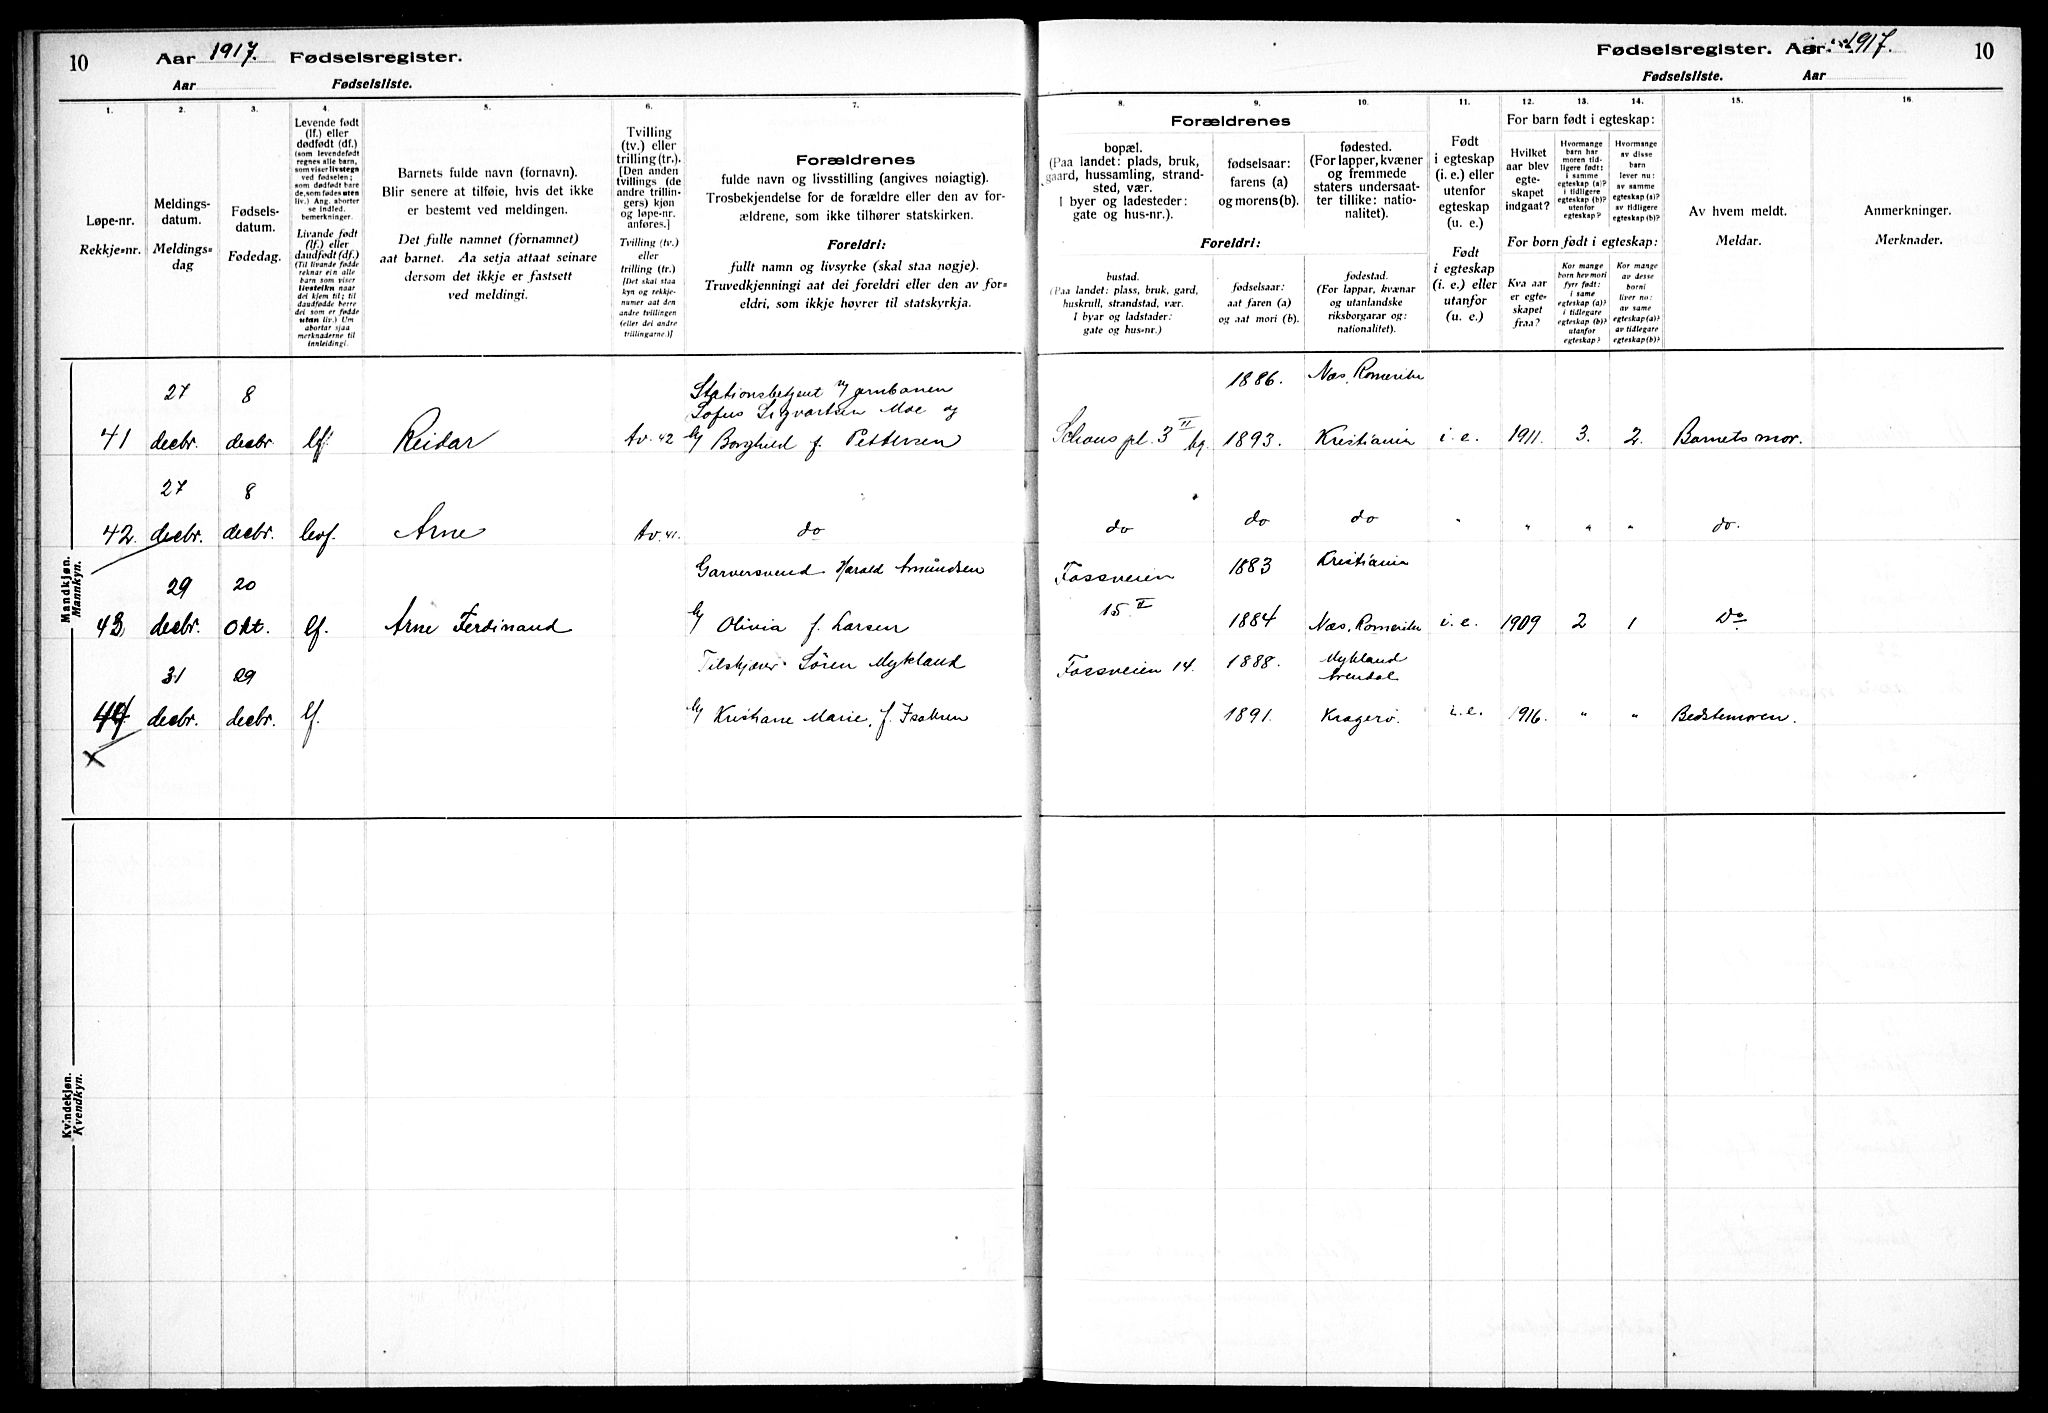 10 Aar 1917. Fødselsregister.
Aar Fødselsliste.
Fødselsregister. Aar 1917. 10
Fødselsliste. Aar
1. 2. 3. 4. 5. 6. 7. 8. 9. 10. 11. 12. 13. 14. 15. 16.
Løpe-nr.
Rekkje-nr.
Meldings-
datum.
Meldings-
dag
Fødsels-
datum.
Fødedag.
Levende født
(lf.) eller
dødfødt (df.)
(som levendefødt
regnes alle barn,
som viser livstegn
ved fødselen;
som dødfødt bare
de, som fødes uten
liv.) Ang. aborter
se indled.
bemerkninger.
Livande født
(lf.) eller
daudfødt (df.)
(Til livande fødde
reknar ein alle
barn som viser
livsteikn naar
dei kjem til; til
daudfødde berre
dei som er fødde
utan liv.) Um
abortar sjaa
merknaderne til
innleidingi.
Barnets fulde navn (fornavn).
Blir senere at tilføie, hvis det ikke
er bestemt ved meldingen.
Det fulle namnet (fornamnet)
aat barnet. Aa setja attaat seinare
dersom det ikkje er fastsett
ved meldingi.
Tvilling
(tv.) eller
trilling (tr.).
[Den anden
tvillings (de
andre trillin-
gers) kjøn
og løpe-nr.
anføres.]
Tvilling (tv.)
eller
trilling (tr.)
[Det skal staa
kyn og rekkje-
numer aat den
andre tvillingen
(eller dei andre
trillingarne.)]
Forældrenes
fulde navn og livsstilling (angives nøiagtig).
Trosbekjendelse for de forældre eller den av for-
ældrene, som ikke tilhører statskirken.
Foreldri:
fullt namn og livsyrke (skal staa nøgje).
Truvedkjenningi aat dei foreldri eller den av for-
eldri, som ikkje høyrer til statskyrkja.
Forældrenes
bopæl.
(Paa landet: plads, bruk,
gaard, hussamling, strand-
sted, vær.
I byer og ladesteder:
gate og hus-nr.).
fødselsaar:
farens (a)
og morens (b).
fødested.
(For lapper, kvæner
og fremmede
staters undersaat-
ter tillike: natio-
nalitet).
Foreldri:
bustad.
(Paa landet: plass, bruk, gard,
huskrull, strandstad, vær.
I byar og ladstader:
gate og hus-nr.)
fødselsaar:
aat faren (a)
og aat mori (b).
fødestad.
(For lappar, kvænar
og utanlandske
riksborgarar og:
nationalitet).
Født
i egteskap
(i. e.) eller
utenfor
egteskap
(u. e.)
Født
i egteskap
(i. e.) eller
utanfor
(u. e.)
For barn født i egteskap:
Hvilket
aar blev
egte-
skapet
indgaat?
Hvormange
barn har
moren tid-
ligere født:
i samme
egteskap (a)?
i tidligere
egteskap (b)?
utenfor
egteskap?
Hvormange
av disse
barn
lever nu:
av samme
egteskap (a)?
av tidligere
egteskap (b)?
For born født i egteskap:
Kva aar
er egte-
skapet
fraa?
Kor mange
born hev mori
fyrr født:
i same
egteskap (a)?
i tidlegare
egteskap (b)?
utanfor
egteskap?
Kor mange
av desse
borni
liver no:
av same
egteskap (a)?
av tidlegare
egteskap (b)?
Av hvem meldt.
Meldar.
Anmerkninger.
Merknader.
Mandkjøn.
Mannkyn.
27 8 Stationsbetjent v/ jernbanen 1886. Næs, Romerike
Sofus Sigvartsen Moe og
41 decbr. decbr. lf. Reidar tv. 42 h/ Borghild f. Pettersen Schous pl. 3 II bg. 1893. Kristiania i. e. 1911. 3. 2. Barnets mor.
27 8
42. decbr. decbr. levf. Arne tv. 41. do do do do " " " " do.
29 20 Garversvend Harald Amundsen Fossveien 1883 Kristiania
15 II
43 decbr. Okt. lf. Arne Ferdinand h/ Olivia f. Larsen 1884 Næs, Romerike i. e. 1909 2 1 Do
31 29 Tilskjærer Søren Mykland Fossveien 14. 1888. Mykland
Arendal
44 decbr. decbr. lf. h/ Kristiane Marie, f. Isaksen 1891. Kragerø. i. e. 1916. " " Bedstemoren.
x
Kvindekjøn.
Kvendkyn.